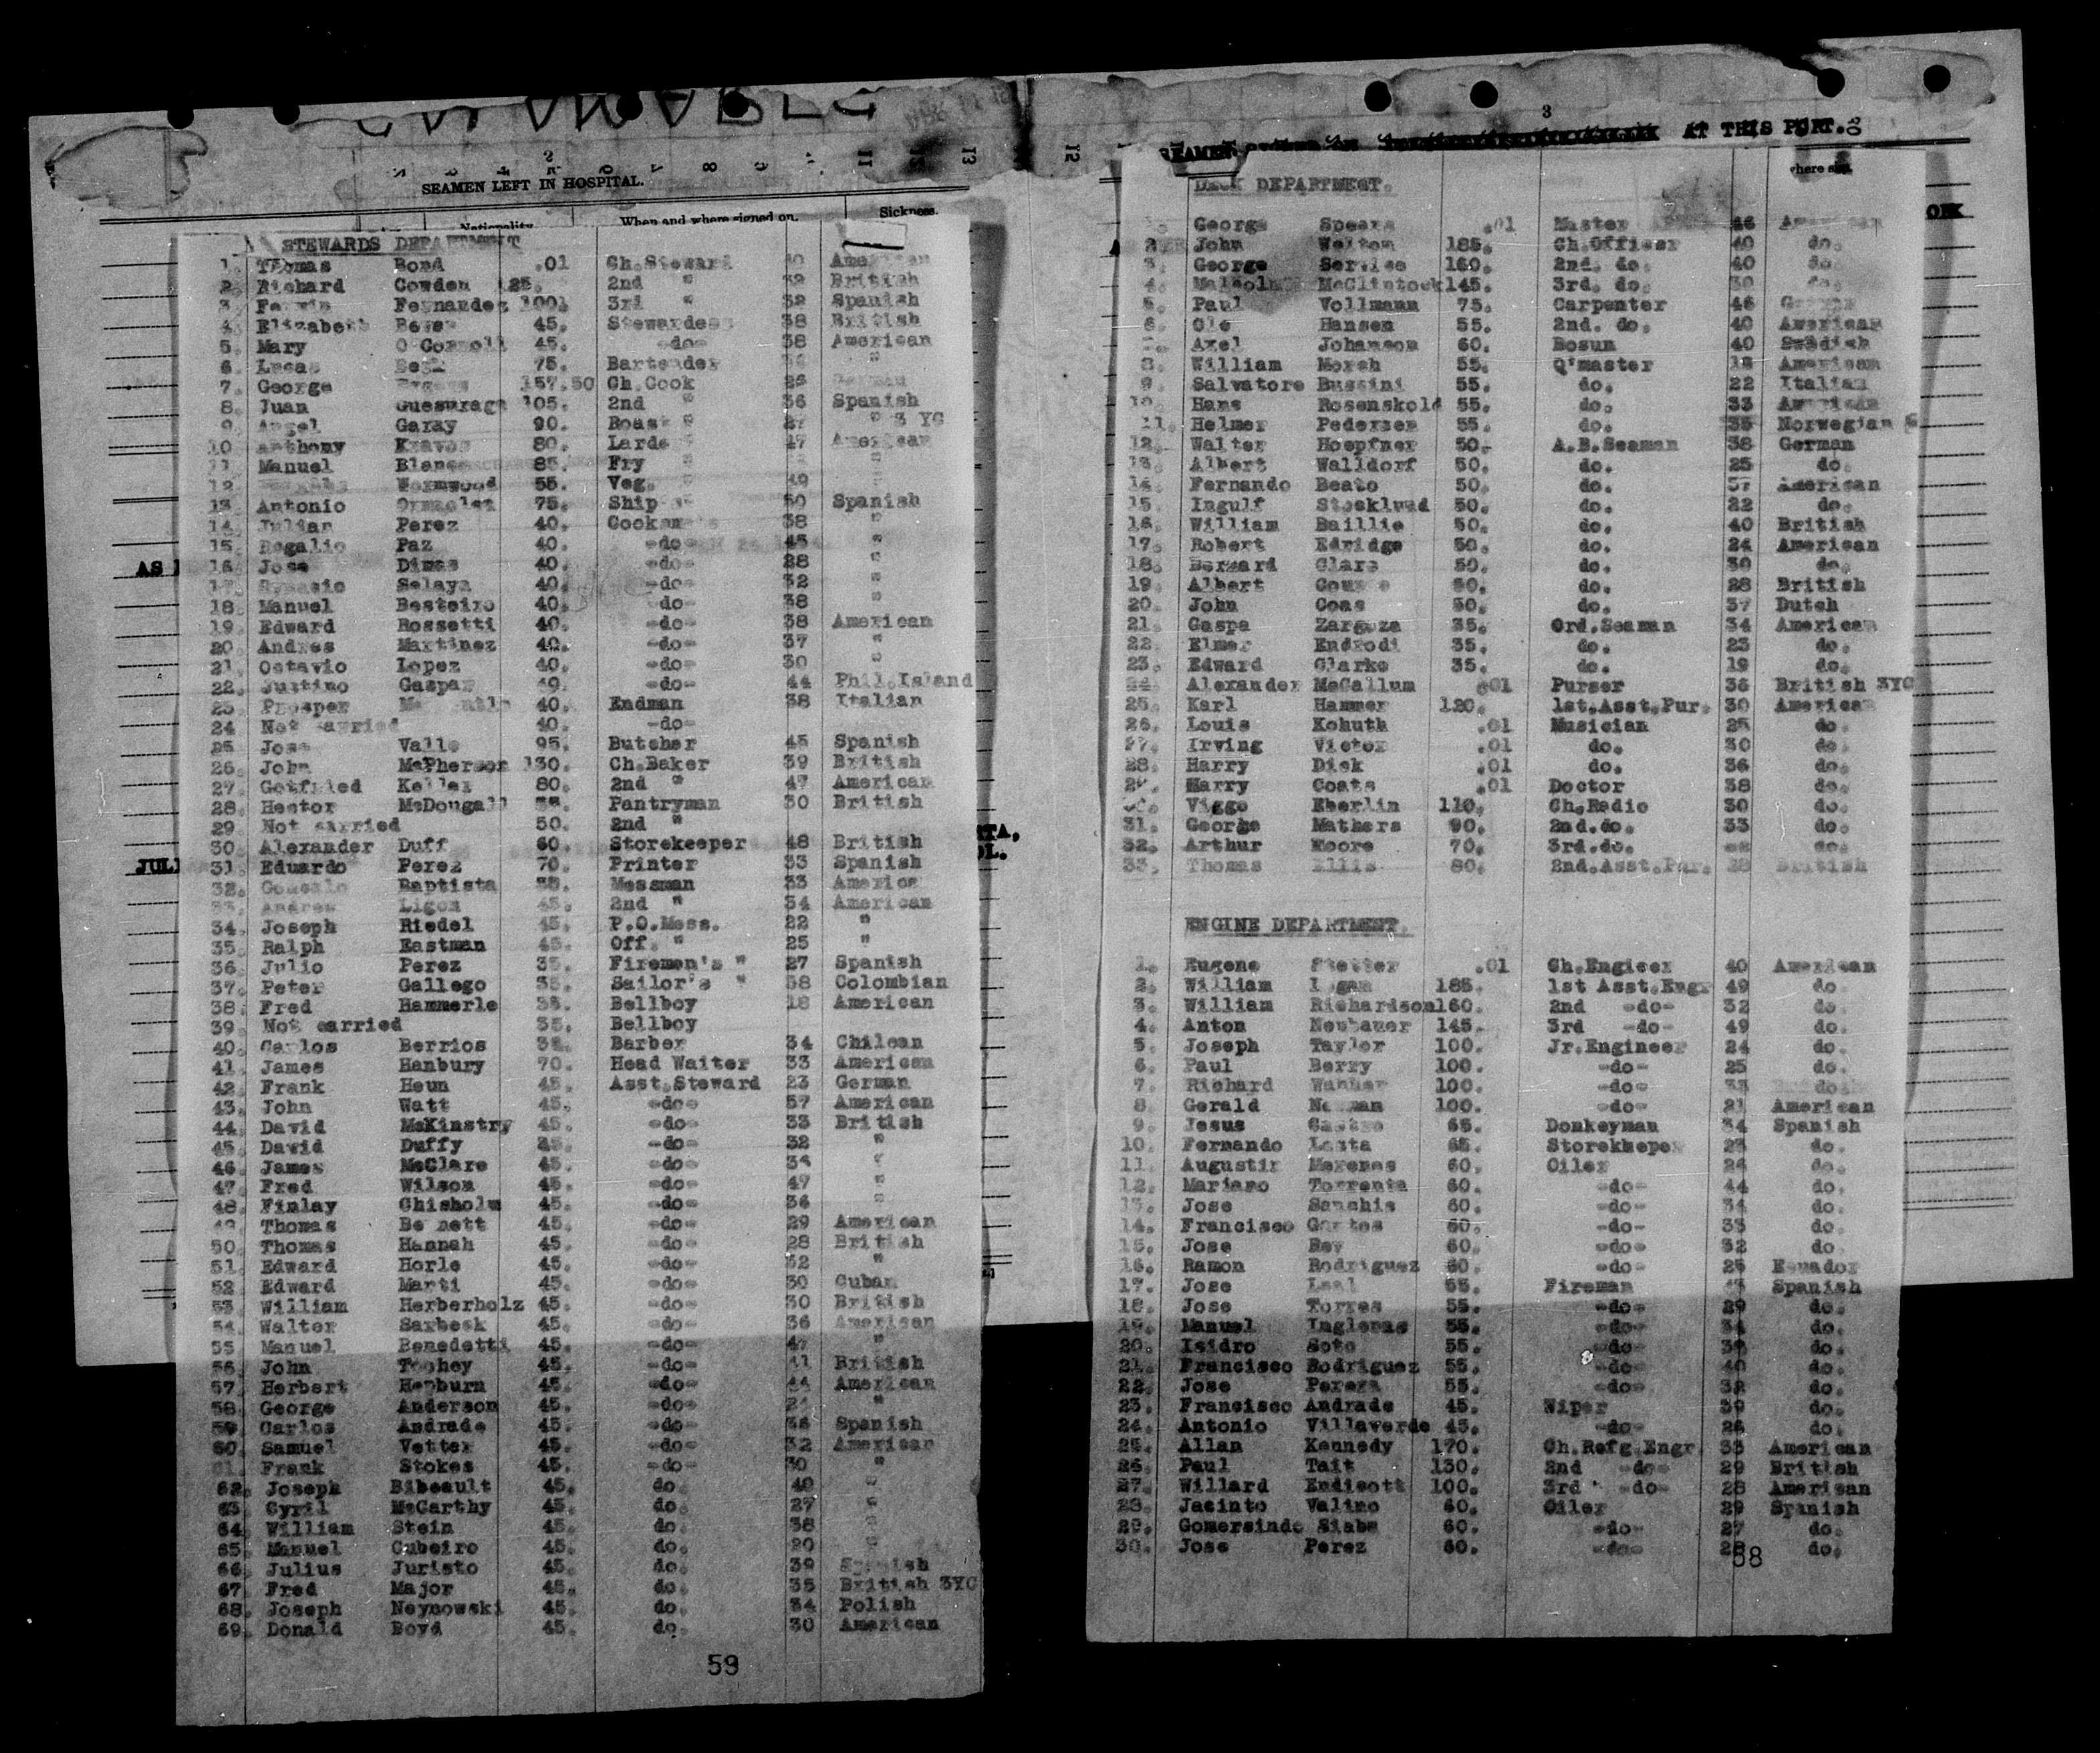 SEAMEN LEFT IN HOSPITAL.
Nationality When and where signed on. Sickness.
STEWARDS DEPARTMENT
1. Thomas Bond .01 Ch.Steward 40 American
2. Richard Cowden 125. 2nd " 39 British
3. Fernandez 3rd " 38 Spanish
4. Elizabeth 45. Stewardess 38 British
5. Mary O'Connell 45. -do- 38 American
6. Lucas 75. Bartender "
7. George 157.50 Ch.Cook 26
8. Juan 105. 2nd " 36 Spanish
9. Angel Garay 90. Roast " 27 " 3 YC
10 Anthony Kravos 80. Larde " 47 American
11 Manuel Blanco 85. Fry " "
12. Wormwood 55. Veg. " 49 "
13. Antonio 75. Ship " 50 Spanish
14. Julian Perez 40. Cooksmate 38 "
15. Rogalio Paz 40. -do- 45 "
16. Jose Dimas 40. -do- 28 "
17. Selaya 40. -do- 32 "
18. Manuel Besteiro 40. -do- 38 "
19. Edward Rossetti 40. -do- 38 American
20. Andres Martinez 40. -do- 37 "
21. Octavio Lopez 40. -do- 30 "
22. Justino Gaspar 40. -do- 44 Phil.Island
23. Prosper 40. Endman 38 Italian
24 Not carried 40. -do-
25 Jose Valle 95. Butcher 45 Spanish
26. John McPherson 130. Ch.Baker 39 British
27. Gotfried Keller 80. 2nd " 47 American
28. Hector McDougall Pantryman 30 British
29. Not carried 50. 2nd "
30. Alexander Duff 60. Storekeeper 48 British
31. Eduardo Perez 70. Printer 33 Spanish
32. Baptista 35. Messman 33 America
33. Andrew Ligon 45. 2nd " 34 American
34. Joseph Riedel 45. P.O.Mess. 22 "
35. Ralph Eastman 45. Off. " 25 "
36. Julio Perez 35. Firemen's " 27 Spanish
37. Peter Gallego 35. Sailor's " 38 Colombian
38. Fred Hammerle 35. Bellboy 18 American
39. Not carried 35. Bellboy
40. Carlos Berrios Barber 34 Chilean
41. James Hanbury 70. Head Waiter 33 American
42. Frank Heun 45. Asst.Steward 23 German
43. John Watt 45. -do- 57 American
44. David McKinstry 45. -do- 33 British
45. David Duffy -do- 32 "
46. James McClare 45. -do- "
47. Fred Wilson 45. -do- 47 "
48. Finlay Chisholm 45. -do- 36 "
49. Thomas Bennett 45. -do- 29 American
50. Thomas Hannah 45. -do- 28 British
51. Edward Horle 45. -do- 32 "
52. Edward Marti 45. -do- 30 Cuban
53. William Herberholz 45. -do- 30 British
54. Walter Saxbeck 45. -do- 36 American
55 Manuel Benedetti 45. -do- 47 "
56. John Toohey 45. -do- 41 British
57. Herbert Hepburn 45. -do- 44 American
58. George Anderson 45. -do- "
59. Carlos Andrade 45. -do- 36 Spanish
60. Samuel Vetter 45. -do- 32 American
61. Frank Stokes 45. -do- 30 "
62. Joseph Bibeault 45. do. "
63 Cyril McCarthy 45. do. 27 "
64. William Stein 45. do. 38 "
65. Manuel Cubeiro 45. do. 20 "
66. Julius Juristo 45. do. 39 Spanish
67. Fred Major 45. do. 35 British 3YC
68. Joseph Neynowski 45. do. 34 Polish
69. Donald Boyd 45. do. 30 American
59
3
SEAMEN AT THIS PORT.
DECK DEPARTMENT.
where
George Spears .01 Master 46 American
2. John Welton 185. Ch.Officer 40 do.
3. George Service 160. 2nd. do. 40 do.
4. Malcolm McClintock 145. 3rd. do. 30 do.
5. Paul Vollmann 75. Carpenter 46 German
6. Ole Hansen 55. 2nd. do. 40 American
7. Axel Johanson 60. Bosun 40 Swedish
8. William Morsh 55. Q'master 18 American
9. Salvatore Bussini 55. do. 22 Italian
10. Hans Rosenskold 55. do. 33 American
11. Helmer Pedersen 55. do. 35 Norwegian
12. Walter Hoepfner 50. A.B.Seaman 38 German
13. Albert Walldorf 50. do. 25 do.
14. Fernando Beato 50. do. 37 American
15. Ingulf 50. do. 22 do.
16. William Baillie 50. do. 40 British
17. Robert Edridge 50. do. 24 American
18. Bernard Clare 50. do. 30 do.
19. Albert 50. do. 28 British
20. John Coas 50. do. 37 Dutch
21. Gaspa Zargoza 35. Ord.Seaman 34 American
22. Elmer Endrodi 35. do. 23 do.
23. Edward Clarke 35. do. 19 do.
24. Alexander McCallum .01 Purser 36 British 3YC
25. Karl Hammer 120. 1st.Asst.Pur. 30 American
26. Louis Kohuth .01 Musician 25 do.
27. Irving Victor .01 do. 30 do.
28. Harry Dick .01 do. 36 do.
29. Harry Coats .01 Doctor 38 do.
30. Viggo Eberlin 110. Ch.Radio 30 do.
31. George Mathers 90. 2nd.do. 33 do.
32. Arthur Moore 70. 3rd.do. do.
33. Thomas Ellis 80. 2nd.Asst.Pur. 28 British
ENGINE DEPARTMENT.
1. Eugene Stetter .01 Ch.Engieer 40 American
2. William Logan 185. 1st Asst.Engr 49 do.
3. William Richardson 160. 2nd -do- 32 do.
4. Anton Neubauer 145. 3rd -do- 49 do.
5. Joseph Taylor 100. Jr.Engineer 24 do.
6. Paul Berry 100. -do- 25 do.
7. Richard 100. -do- 33 do.
8. Gerald Newman 100. -do- 21 American
9. Jesus Castro 65. Donkeyman 34 Spanish
10. Fernando Lasta 65. Storekeeper 23 do.
11. Augustin Merenas 60. Oiler 24 do.
12. Mariano Torrente 60. -do- 44 do.
13. Jose Sanchis 60. -do- 34 do.
14. Francisco 60. -do- 33 do.
15. Jose Rey 60. -do- 32 do.
16. Ramon Rodriguez 60. -do- 25 Ecuador
17. Jose Leal 55. Fireman 43 Spanish
18. Jose Torres 55. -do- 29 do.
19. Manuel 55. -do- 34 do.
20. Isidro Soto 55. -do- do.
21. Francisco Rodriguez 55. -do- 40 do.
22. Jose Perera 55. -do- 32 do.
23. Francisco Andrade 45. Wiper 39 do.
24. Antonio Villaverde 45. -do- 26 do.
25. Allan Kennedy 170. Ch.Refg.Engr. 33 American
26. Paul Tait 130. 2nd -do- 29 British
27. Willard Endicott 100. 3rd -do- 28 American
28. Jacinto Valino 60. Oiler 29 Spanish
29. Gomersindo Siaba 60. -do- 27 do.
30. Jose Perez 60. -do- 28 do.
58